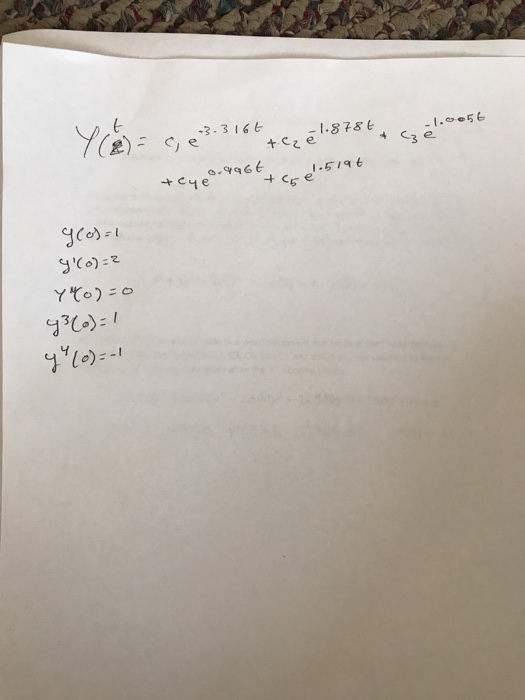 Y(t) = c₁e^-3.316t + c₂e^-1.878t + c₃e^-1.005t
+ c₄e^0.996t + c₅e^1.519t
y(0)=1
y'(0)=2
Y''(0)=0
y³(0)=1
y⁴(0)=-1